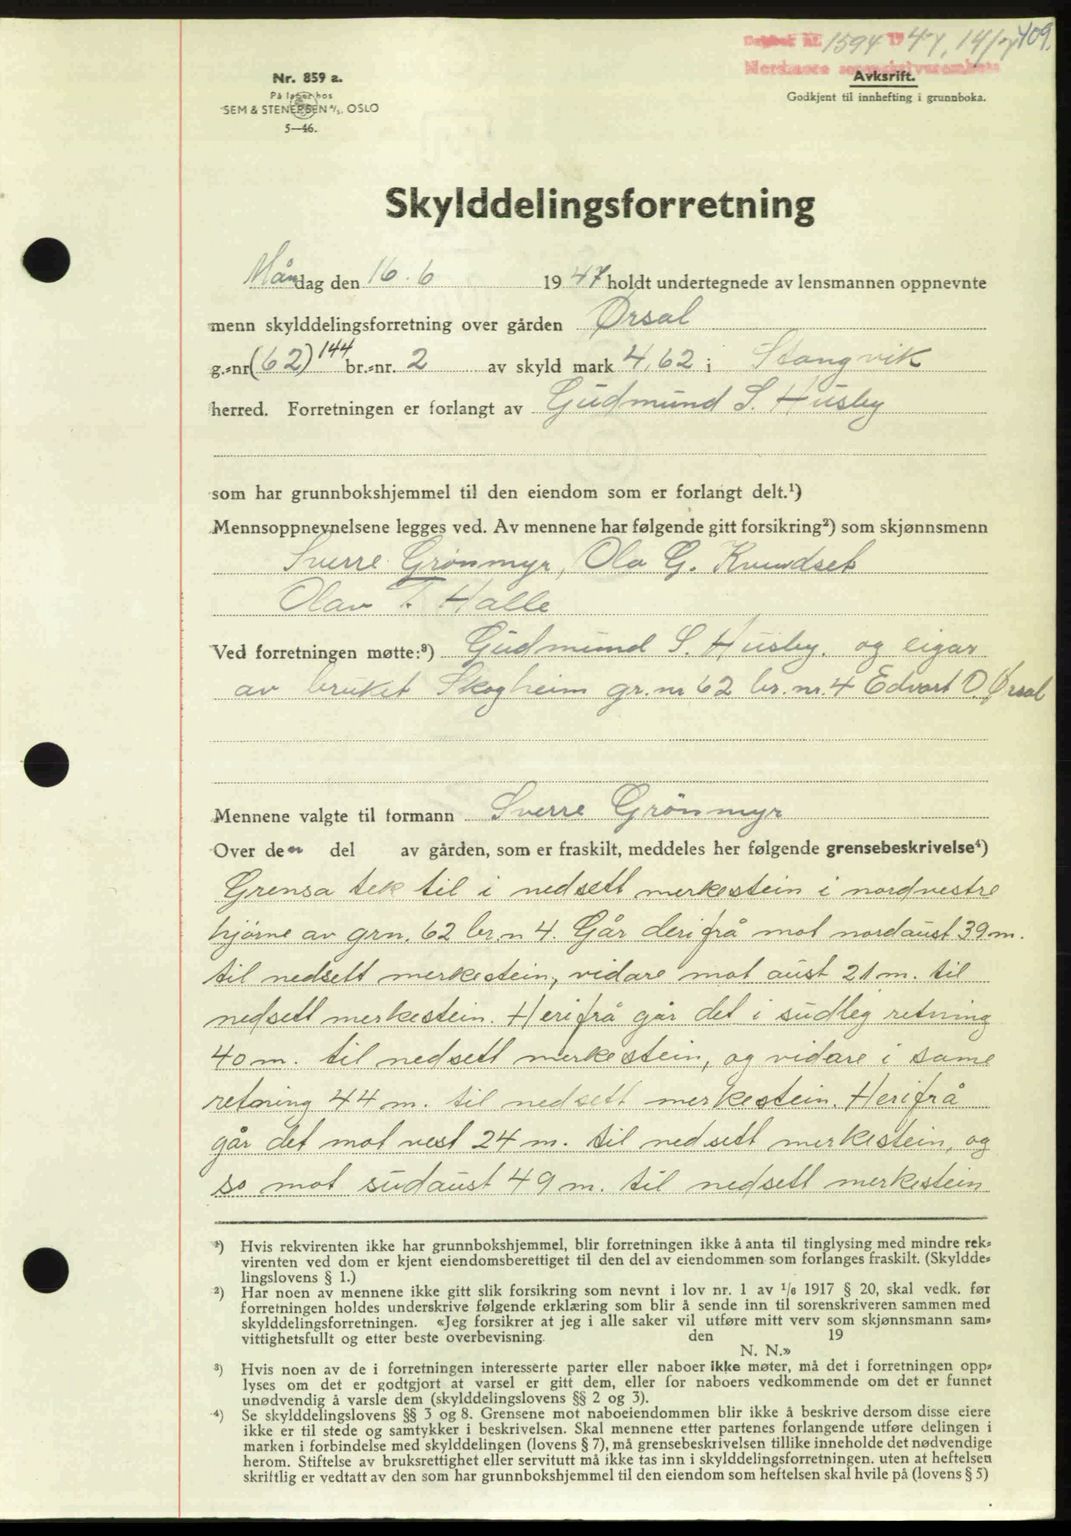 1594 1947, 14/7 409.
Nordmøre sorenskriverembete
Nr. 859 a.
På lager hos
SEM & STENERSEN A/S. OSLO
5—46.
Avksrift.
Godkjent til innhefting i grunnboka.
Skylddelingsforretning
Måndag den 16.6 1947 holdt undertegnede av lensmannen oppnevnte
menn skylddelingsforretning over gården Ørsal
g.-nr (62) 144 br.-nr. 2 av skyld mark 4,62 i Stangvik
herred. Forretningen er forlangt av Gudmund S. Husby
som har grunnbokshjemmel til den eiendom som er forlangt delt.¹)
Mennsoppnevnelsene legges ved. Av mennene har følgende gitt forsikring²) som skjønnsmenn
Sverre Grønmyr, Ola G. Kvendset
Olav T. Halle
Ved forretningen møtte:³) Gudmund S. Husby. og eigar
av bruket Skogheim gr.nr 62 br.nr.4 Edvart O. Ørsal
Mennene valgte til formann Sverre Grönmyr
Over den del av gården, som er fraskilt, meddeles her følgende grensebeskrivelse⁴)
Grensa tek til i nedsett merkestein i nordvestre
hjörne av grn. 62 br.n 4. Går derifrå mot nordaust 39 m.
til nedsett merkestein, vidare mot aust 21 m. til
nedsett merkestein. Herifrå går det i sudleg retning
40 m. til nedsett merkestein, og vidare i same
retning 44 m. til nedsett merkestein. Herifrå
går det mot vest 24 m. til nedsett merkestein, og
so mot sudaust 49 m. til nedsett merkestein
¹) Hvis rekvirenten ikke har grunnbokshjemmel, blir forretningen ikke å anta til tinglysing med mindre rek-
virenten ved dom er kjent eiendomsberettiget til den del av eiendommen som forlanges fraskilt. (Skyldde-
lingslovens § 1.)
²) Har noen av mennene ikke gitt slik forsikring som nevnt i lov nr. 1 av 1/6 1917 § 20, skal vedk. før
forretningen holdes underskrive følgende erklæring som blir å sende inn til sorenskriveren sammen med
skylddelingsforretningen. «Jeg forsikrer at jeg i alle saker vil utføre mitt verv som skjønnsmann sam-
vittighetsfullt og etter beste overbevisning. den 19
N. N.»
³) Hvis noen av de i forretningen interesserte parter eller naboer ikke møter, må det i forretningen opp-
lyses om det er godtgjort at varsel er gitt dem, eller for naboers vedkommende om det er funnet
unødvendig å varsle dem (skylddelingslovens §§ 2 og 3).
⁴) Se skylddelingslovens §§ 3 og 8. Grensene mot naboeiendommen blir ikke å beskrive dersom disse eiere
ikke er til stede og samtykker i beskrivelsen. Skal mennene etter partenes forlangende utføre delingen i
marken i forbindelse med skylddelingen (lovens § 7), må grensebeskrivelsen tillike inneholde det nødvendige
herom. Stiftelse av bruksrettighet eller servitutt må ikke tas inn i skylddelingsforretningen. uten at heftelsen
skriftlig er vedtatt av den som har grunnbokshjemmel til den eiendom som heftelsen skal hvile på (lovens § 5)